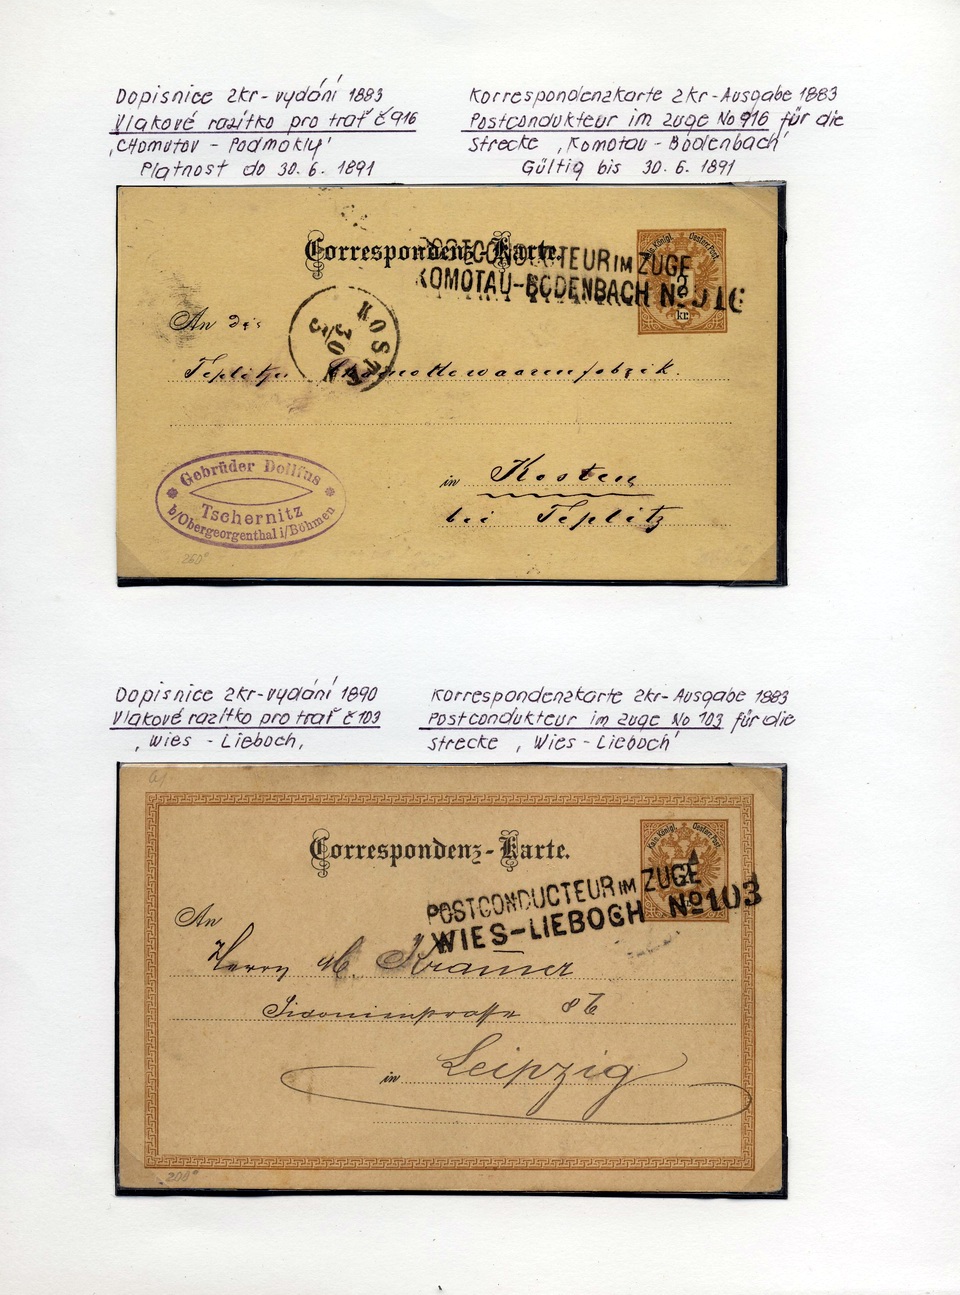 Dopisnice 2kr-vydání 1883
Vlakové razítko pro trať č 916
‚Chomutov - Podmokly'
Platnost do 30. 6. 1891
Korrespondenzkarte 2kr-Ausgabe 1883
Postcondukteur im zuge No 916 für die
strecke ‚Komotau - Bodenbach'
Gültig bis 30. 6. 1891
Correspondenz-Karte.
POSTCONDUCTEUR IM ZUGE
KOMOTAU-BODENBACH No 916
Kais. Königl. Oesterr. Post.
2
kr.
An die
KOSTEN
30
5
Teplitzer Chamottewaarenfabrik.
in Kosten
bei Teplitz
Gebrüder Dollfus
Tschernitz
b/Obergeorgenthal i/Böhmen
260°
Dopisnice 2kr-vydání 1890
Vlakové razítko pro trať č 103
‚Wies - Lieboch‚
Korrespondenzkarte 2kr-Ausgabe 1883
Postcondukteur im zuge No 103 für die
strecke ‚Wies - Lieboch'
Correspondenz-Karte.
Kais. Königl. Oesterr. Post
POSTCONDUCTEUR IM ZUGE
WIES-LIEBOCH No 103
An
Herrn M. Kramer
Sidonienstrasse
in Leipzig
200°